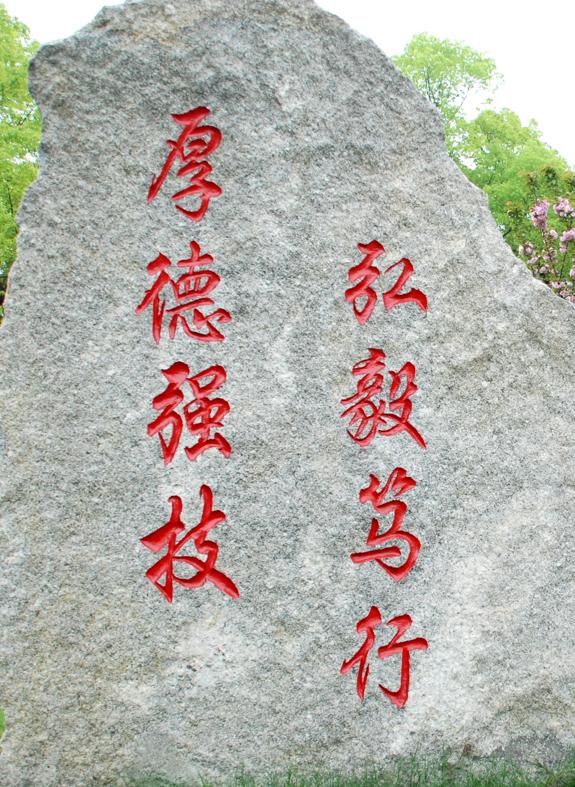 厚德强技
弘毅笃行